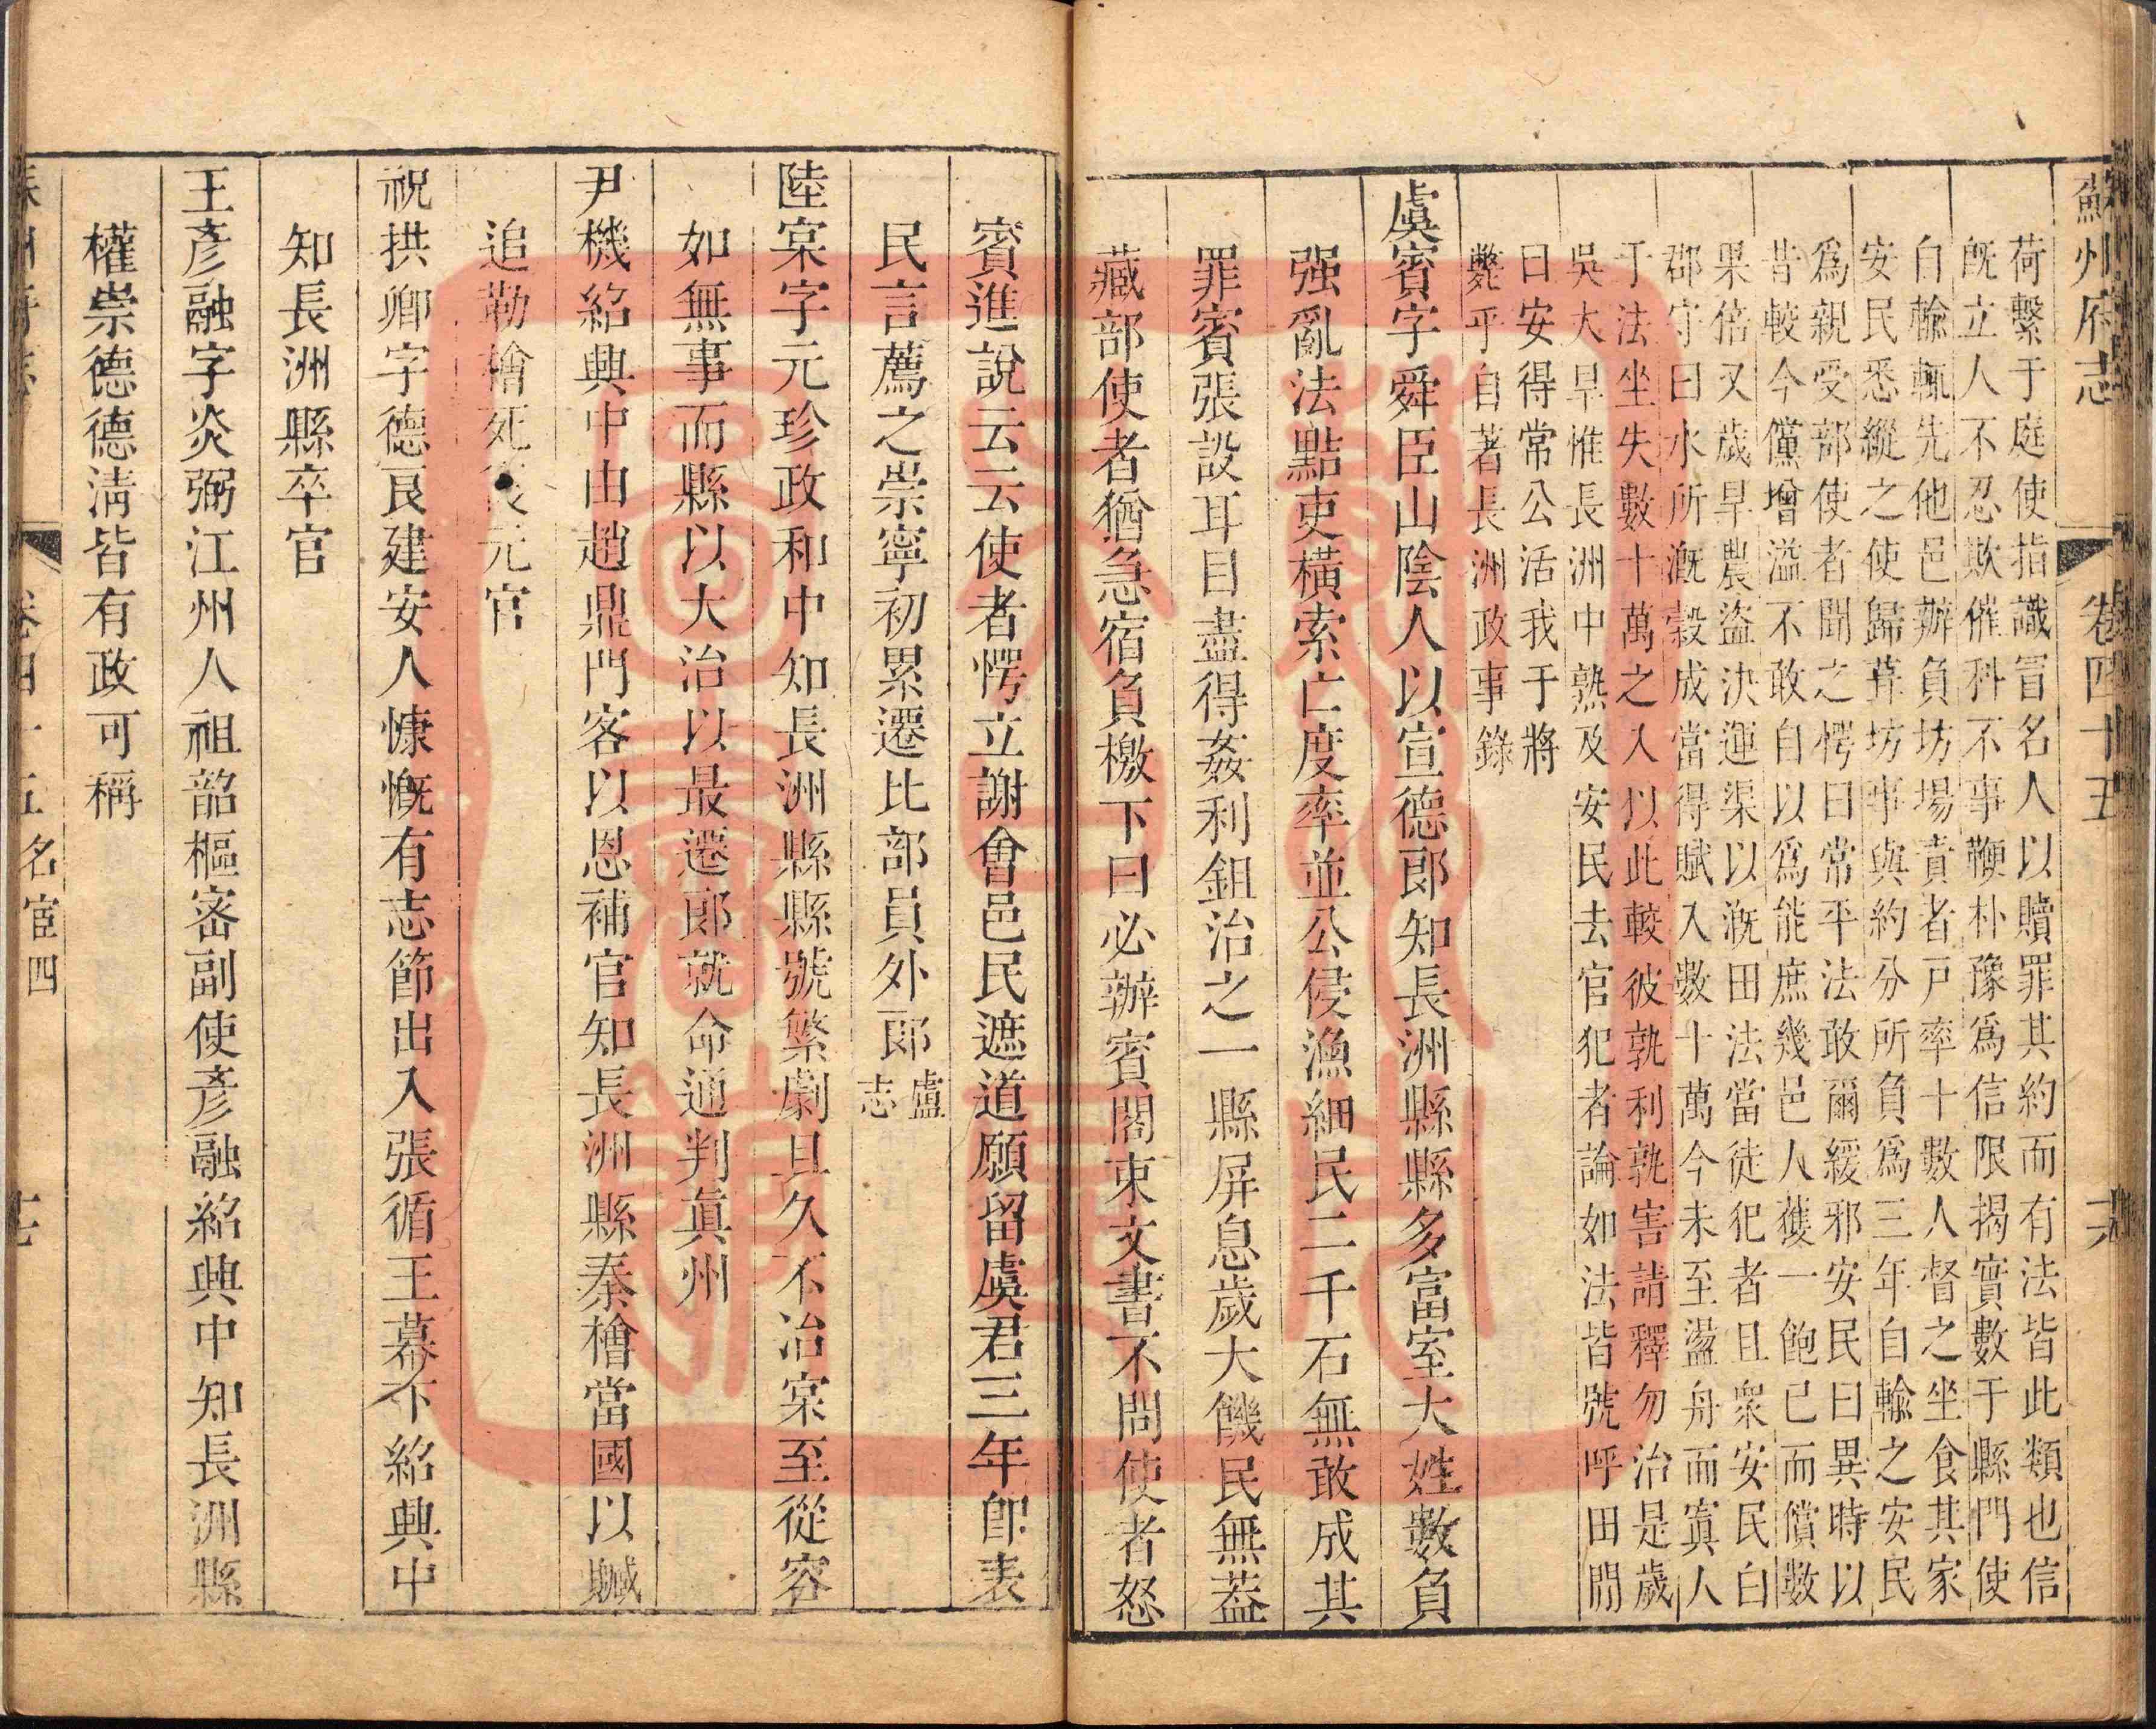 蘇州府志
卷四十五
荷繫于庭使指識冒名人以贖罪其約而有法皆此類也信
既立人不忍欺催科不事鞭朴豫爲信限揭實數于縣門使
自輸輒先他邑辦負坊場責者戸率十數人督之坐食其家
安民悉縱之使歸葺坊事與約分所負爲三年自輸之安民
爲親受部使者聞之愕曰常平法敢爾緩邪安民曰異時以
昔較今儻增溢不敢自以爲能庶幾邑人獲一飽已而償數
果倍又歲旱農盜決運渠以漑田法當徒犯者且衆安民白
郡守曰水所漑穀成當得賦入數十萬今未至澁舟而寘人
于法坐失數十萬之入以此較彼孰利孰害請釋勿治是歲
吳大旱惟長洲中熟及安民去官犯者論如法皆號呼田間
曰安得常公活我于將
斃乎自著長洲政事錄
虞賓字舜臣山陰人以宣德郎知長洲縣縣多富室大姓數負
强亂法點吏橫索亡度率並公侵漁細民二千石無敢成其
罪賓張設耳目盡得姦利鉏治之一縣屏息歲大饑民無蓋
藏部使者猶急宿負檄下曰必辦賓閣束文書不問使者怒
賓進說云云使者愕立謝會邑民遮道願留虞君三年卽表
民言薦之崇寧初累遷比部員外郎盧志
陸寀字元珍政和中知長洲縣縣號繁劇且久不治寀至從容
如無事而縣以大治以最遷郎就命通判眞州
尹機紹興中由趙鼎門客以恩補官知長洲縣秦檜當國以贓
追勒檜死元官
祝拱卿字德艮建安人慷慨有志節出入張循王幕下紹興中
知長洲縣卒官
王彥融字炎弼江州人祖韶樞密副使彥融紹興中知長洲縣
權崇德德淸皆有政可稱
名宦四